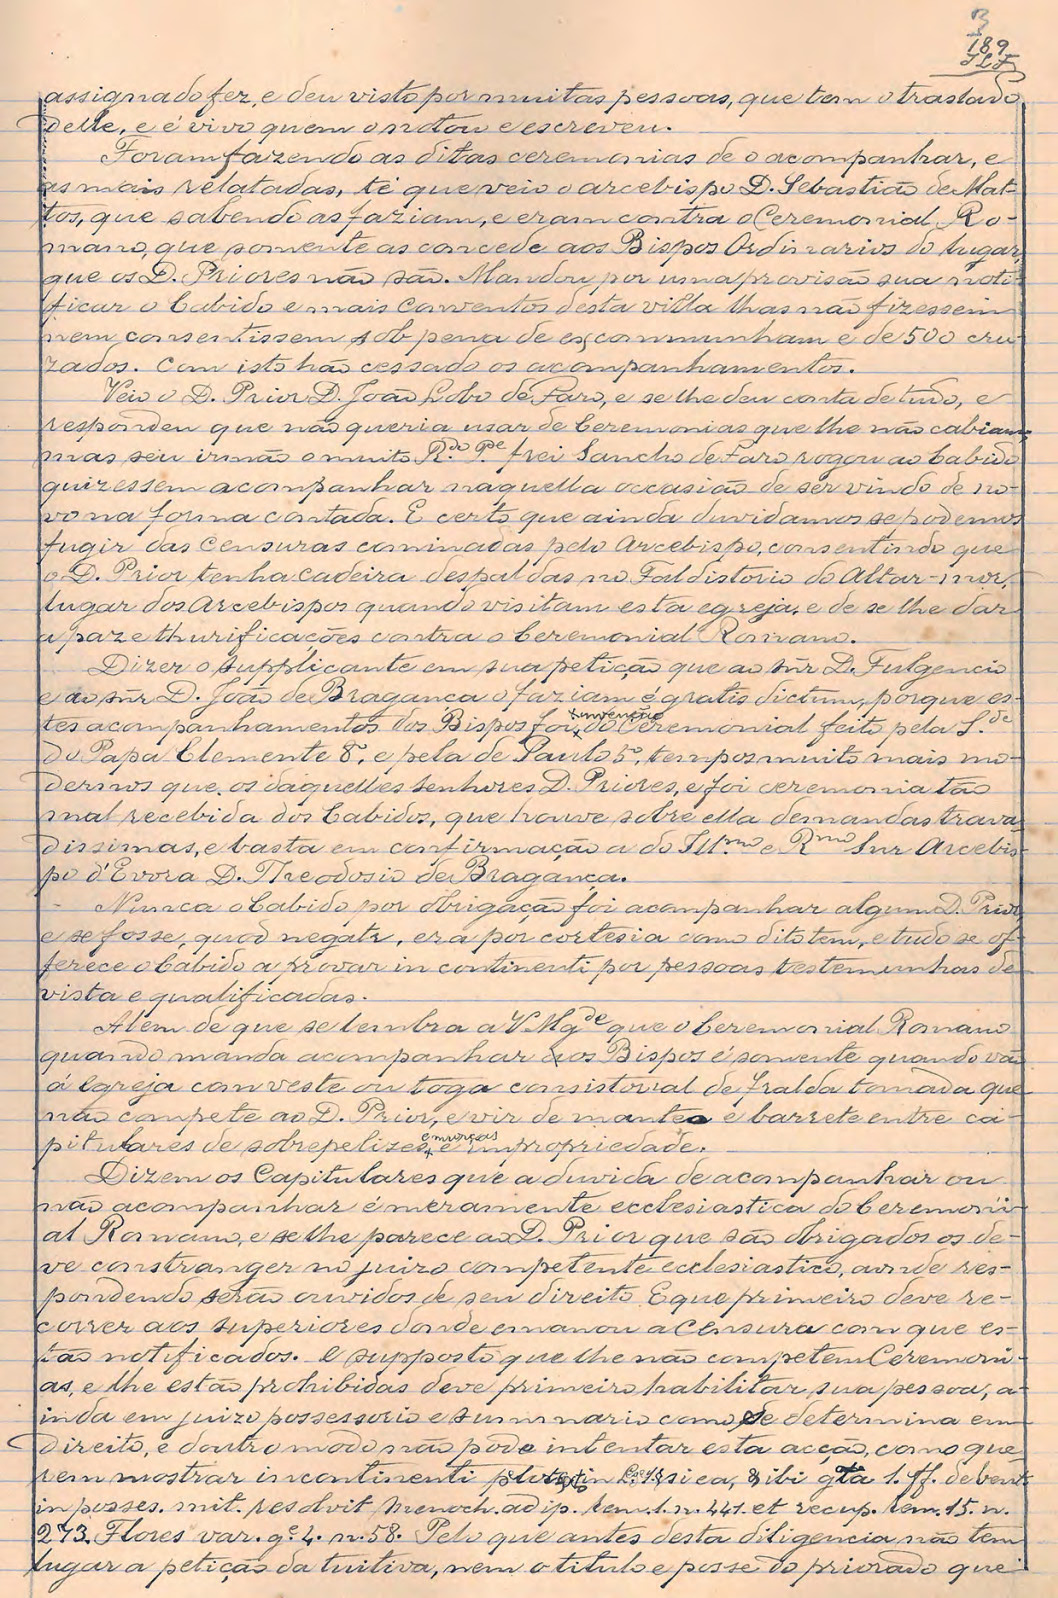 3
189
assignado fez, e deu visto por muitas pessoas, que tem o traslado
delle, e é vivo quem o notou e escreveu.
Foram fazendo as ditas ceremonias de o acompanhar, e
as mais relatadas, té que veio o arcebispo D. Sebastião de Mat-
tos, que sabendo as faziam, e eram contra o Ceremonial Ro-
mano, que somente as concede aos Bispos Ordinarios do lugar,
que os D. Priores não são. Mandou por uma provisão sua noti-
ficar o Cabido e mais Conventos desta villa lhas não fizessem
nem consentissem sob pena de excommunham e de 500 cru-
zados. Com isto hão cessado os acompanhamentos.
Veio o D. Prior D. João Lobo de Faro, e se lhe deu conta de tudo, e
respondeu que não queria usar de Ceremonias que lhe não cabiam
mas seu irmão o muito R.do P.e frei Sancho de Faro rogou ao Cabido
quizessem acompanhar naquella occasião de ser vindo de no-
vo na forma contada. E certo que ainda duvidamos se podemos
fugir das Censuras cominadas pelo Arcebispo, consentindo que
o D. Prior tenha Cadeira despaldas no Faldistorio do Altar-mor,
lugar dos Arcebispos quando visitam esta egreja, e de se lhe dar
a paz e thurificações contra o Ceremonial Romano.
Dizer o supplicante em sua petição que ao snr D. Fulgencio
e ao snr D. João de Bragança o faziam é gratis dictum, porque es-
tes acompanhamentos dos Bispos foi invenção do Ceremonial feito pela S.de
do Papa Clemente 8º, e pela de Paulo 5º, tempos muito mais mo-
dernos que os daquelles Senhores D. Priores, e foi ceremonia tão
mal recebida dos Cabidos, que houve sobre ella demandas trava-
dissimas, e basta em confirmação a do Ill.mo e R.mo Snr Arcebis-
po d'Evora D. Theodosio de Bragança.
Nunca o Cabido por obrigação foi acompanhar algum D. Prior,
e se fosse, quod negatr, era por cortesia como dito tem, e tudo se of-
ferece o Cabido a provar in continenti por pessoas testemunhas de
vista e qualificadas.
Alem de que se lembra a V. Mg.de que o Ceremonial Romano
quando manda acompanhar aos Bispos é somente quando vão
á Egreja com veste ou toga consistorial de fralda tomada que
não compete ao D. Prior, e vir de manteo e barrete entre ca-
pitulares de sobrepelizes e murças é impropriedade.
Dizem os Capitulares que a duvida de acompanhar ou
não acompanhar é meramente ecclesiastica do Ceremoni-
al Romano, e se lhe parece ao D. Prior que são obrigados os de-
ve constranger no juizo competente ecclesiastico, aonde res-
pondendo serão ouvidos de seu direito. E que primeiro deve re-
correr aos superiores donde emanou a Censura com que es-
tão notificados. E supposto que lhe não competem Ceremoni-
as, e lhe estão prohibidas deve primeiro habilitar sua pessoa, a-
inda em juizo possessorio e summario como se determina em
direito, e doutro modo não pode intentar esta acção, como que-
rem mostrar incontinenti & ibi gta l. ff. de bent.
in posses. mit. resolvit Menoch. adip. rem. 1. n. 441. et recup. rem. 15. n.
273. Flores var. q.e 4. n. 58. Pelo que antes desta diligencia não tem
lugar a petição da tuitiva, nem o titulo e posse do priorado que